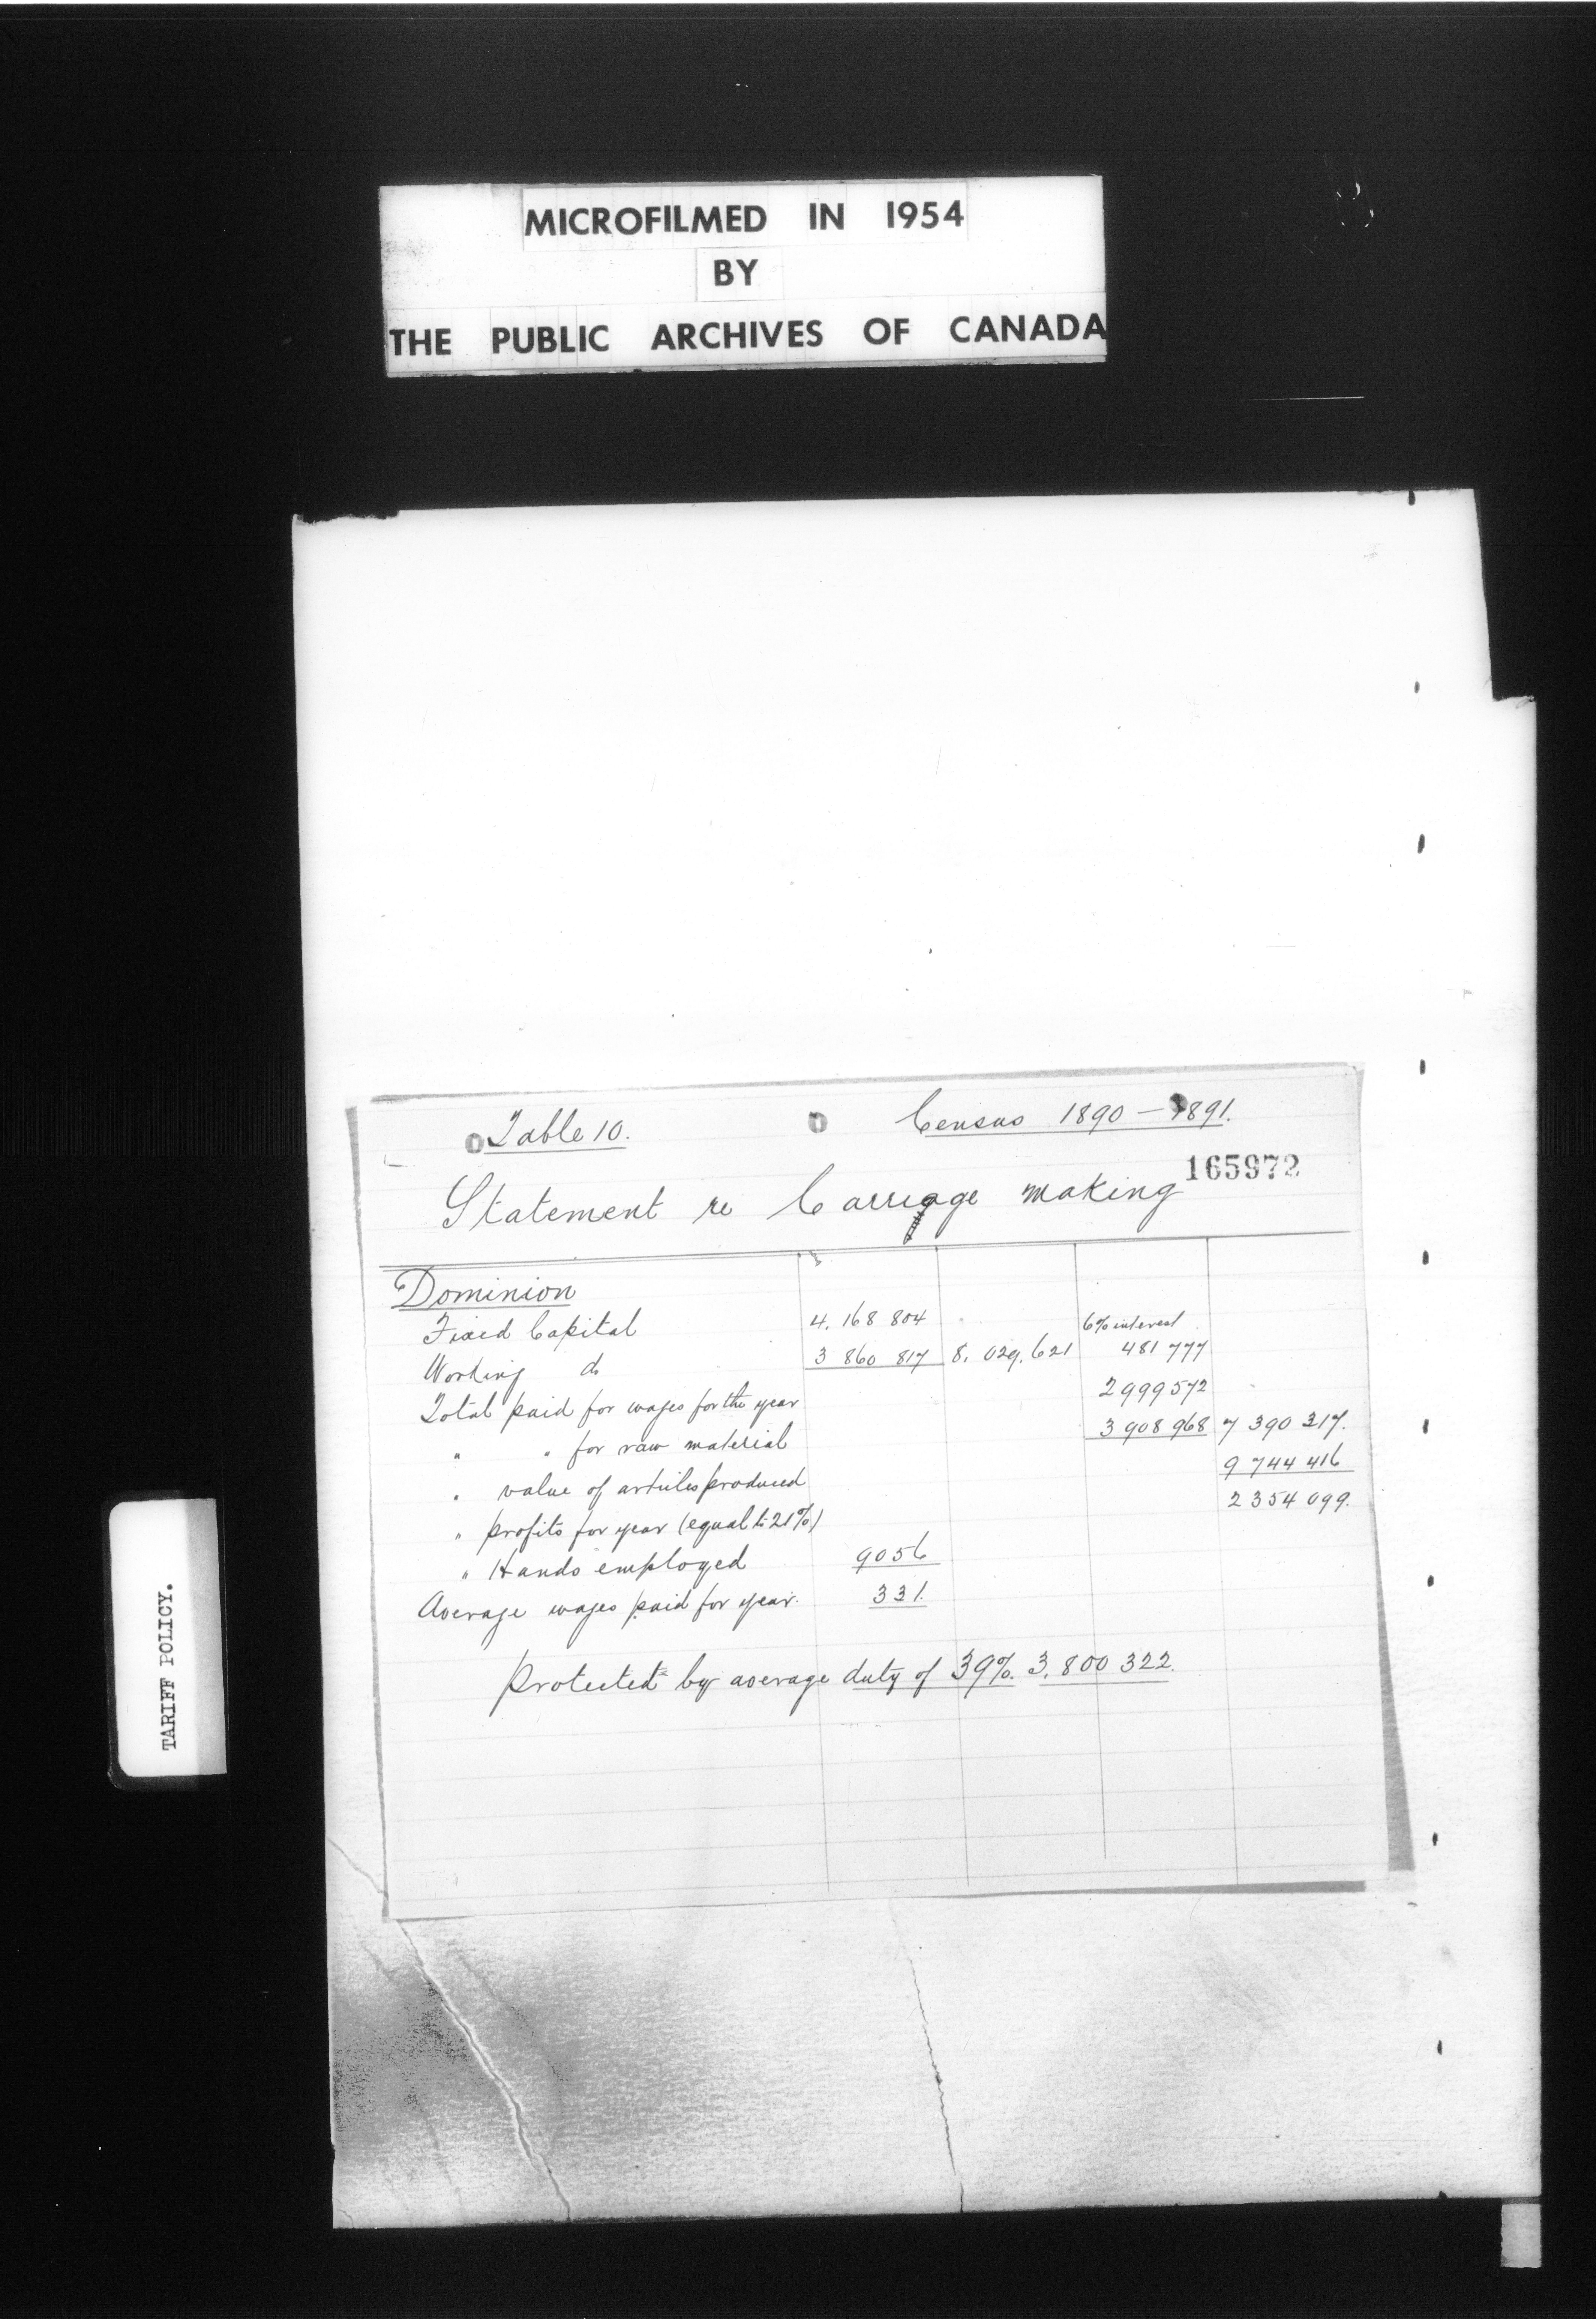 MICROFILMED IN 1954
BY
THE PUBLIC ARCHIVES OF CANADA
Table 10. Census 1890 — 1891.
165972
Statement re Carriage making
Dominion
Fixed Capital 4. 168 804 6% interest
Working do 3 860 817 8. 029. 621 481 777
Total paid for wages for the year 2 999 572
" " for raw material 3 908 968 7 390 317.
" value of articles produced 9 744 416
" profits for year (equal to 21%) 2 354 099.
" Hands employed 9056
Average wages paid for year. 331.
Protected by average duty of 39%. 3. 800 322.
TARIFF POLICY.